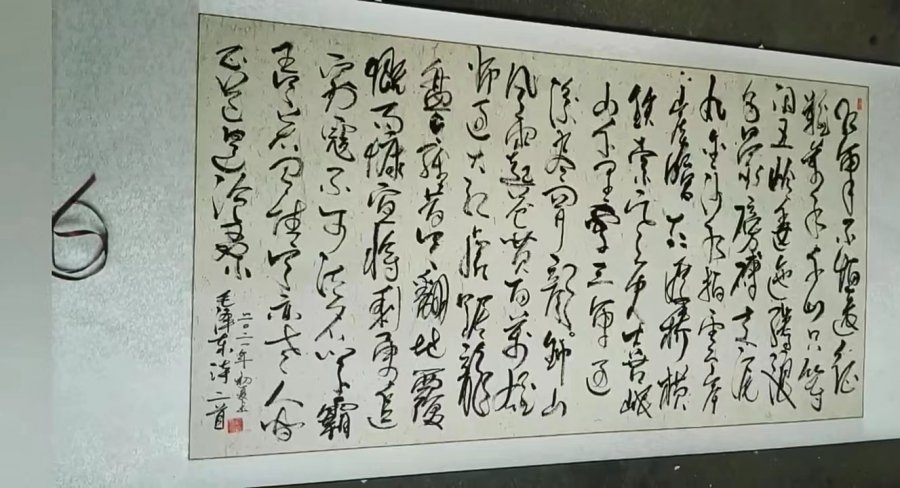 红軍不怕遠征
難萬水千山只等
闲五岭逶迤腾细浪
乌蒙磅礴走泥
丸金沙水拍云
崖暖大渡桥横
铁索寒更喜岷
山千里雪三軍过
後尽開颜鍾山
风雨起苍黄百萬雄
师过大江虎踞龍
盘今勝昔天翻地覆
慨而慷宜将剩勇追
穷寇不可沽名学霸
王天若有情天亦老人间
正道是沧桑
毛泽东诗二首
二〇二一年初夏书